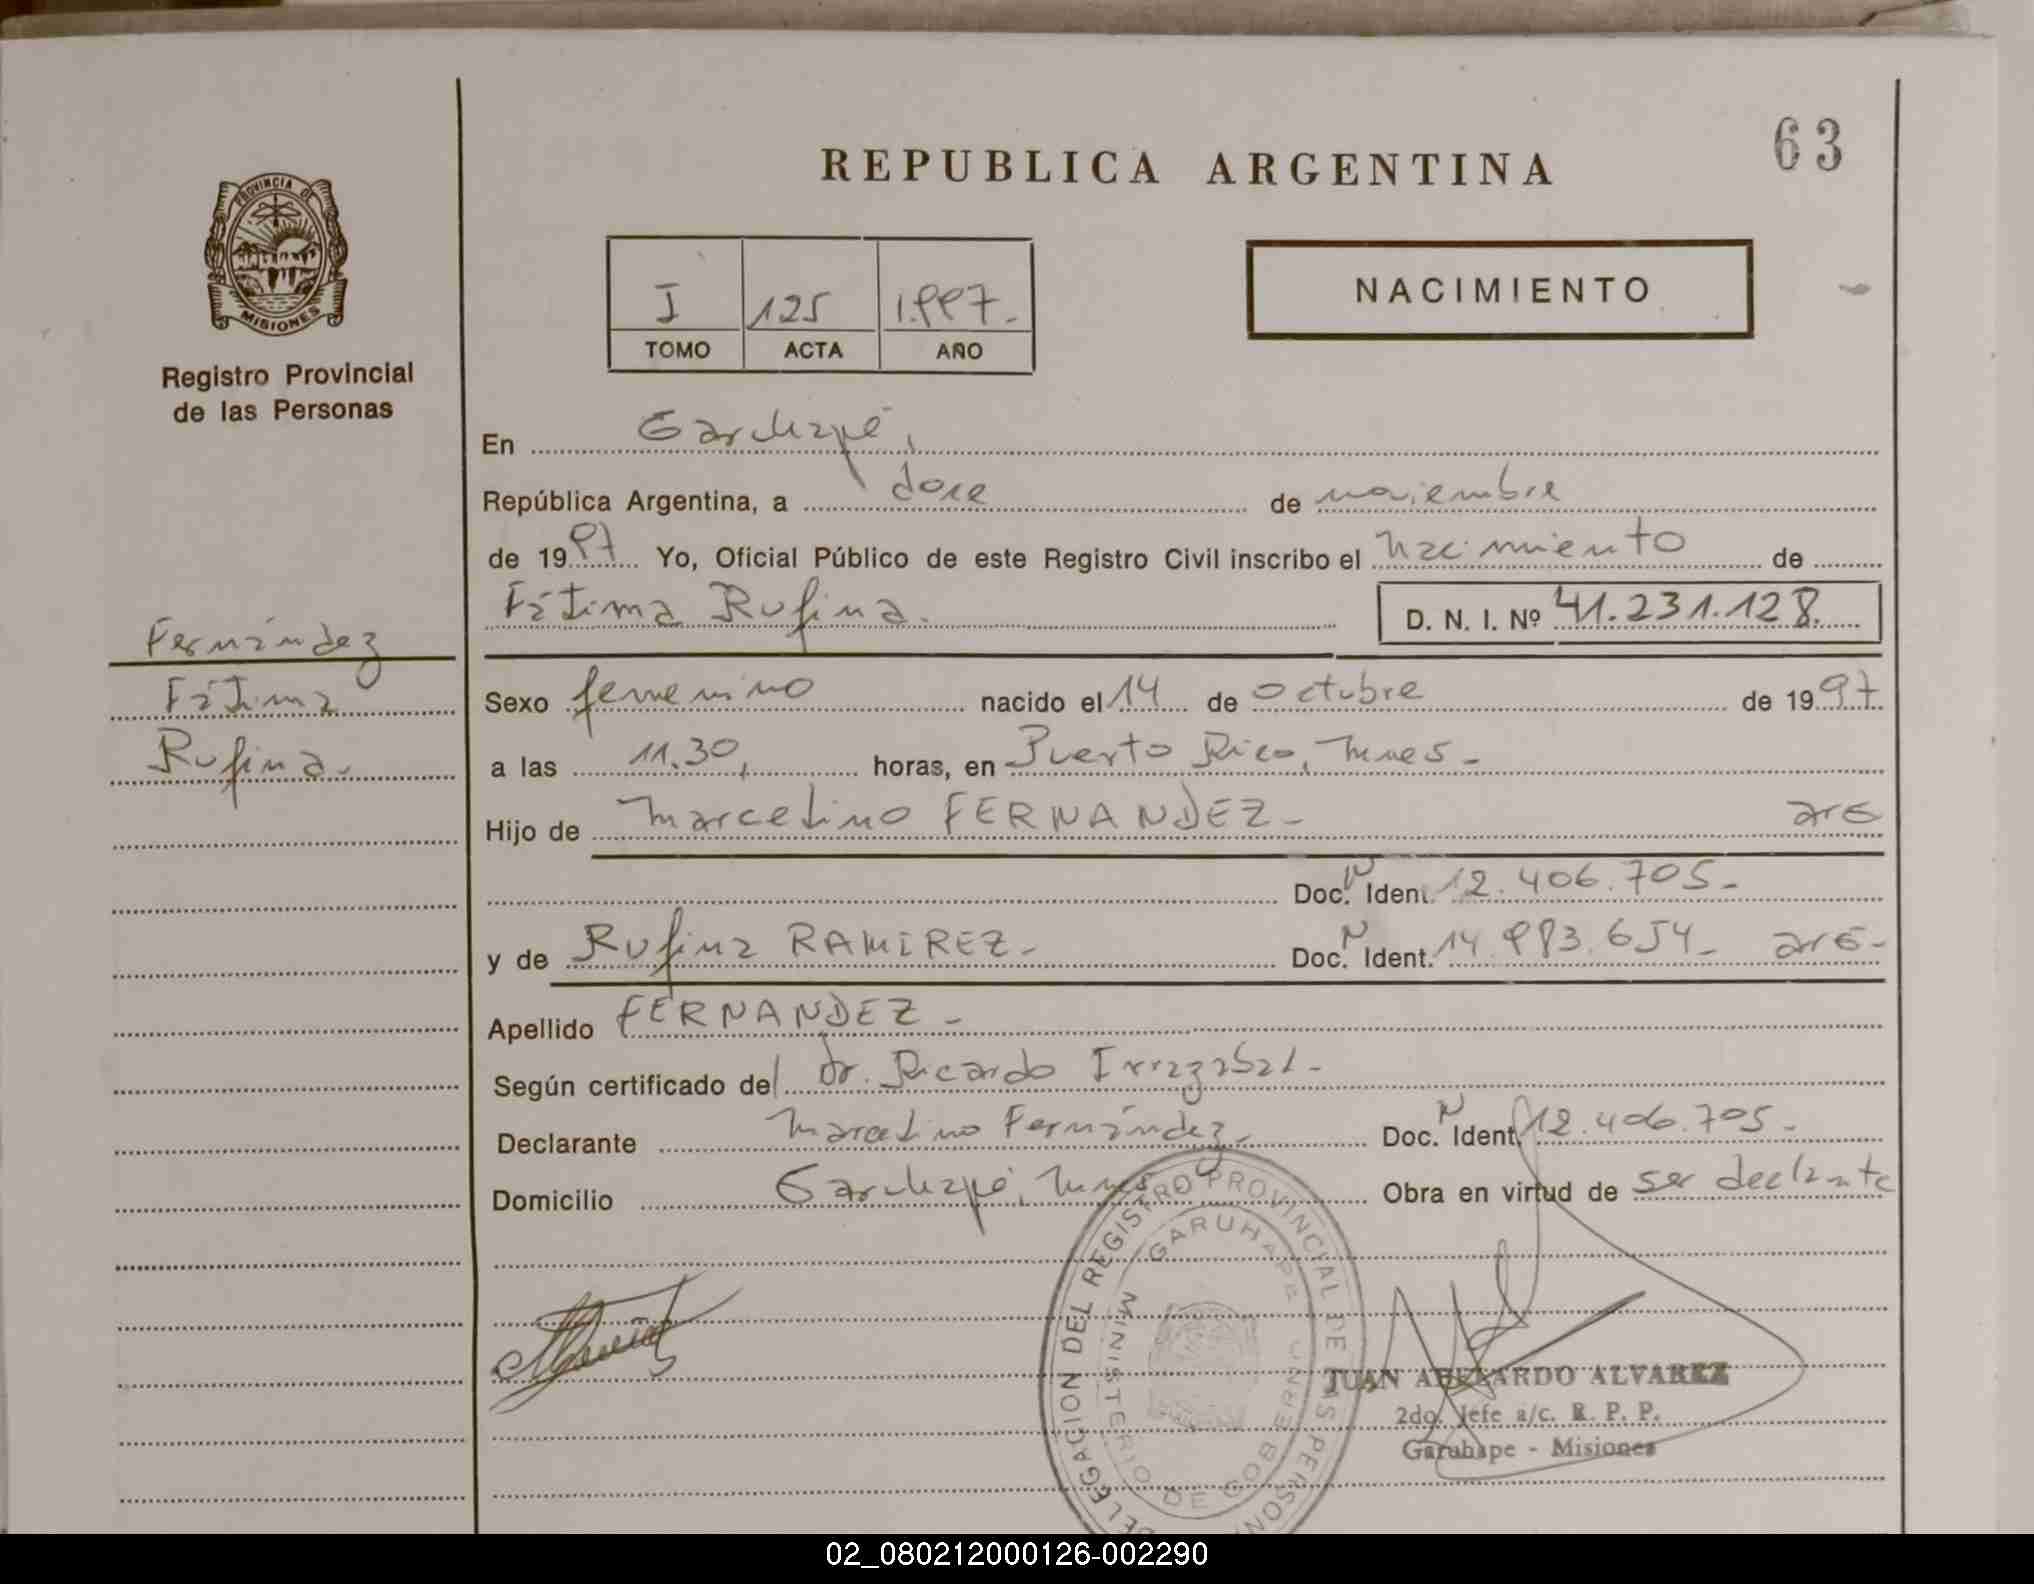 63
REPUBLICA ARGENTINA
PROVINCIA DE
MISIONES
Registro Provincial
de las Personas
I 125 1.997.-
TOMO ACTA AÑO
NACIMIENTO
En Garuhapé,
República Argentina, a doce de noviembre
de 1997 Yo, Oficial Público de este Registro Civil inscribo el nacimiento de
Fátima Rufina. D. N. I. Nº 41.231.128.
Fernández
Fátima
Rufina.-
Sexo femenino nacido el 14 de octubre de 1997
a las 11.30, horas, en Puerto Rico, Mnes.-
Hijo de Marcelino FERNANDEZ.- arg
Doc. N Ident. 12.406.705.-
y de Rufina RAMIREZ.- Doc. N Ident. 14.993.654.- arg.-
Apellido FERNANDEZ.-
Según certificado del Dr. Ricardo Irrazabal.-
Declarante Marcelino Fernández.- Doc. N Ident. 12.406.705.-
Domicilio Garuhapé, Mnes Obra en virtud de ser declarante
DELEGACION DEL REGISTRO PROVINCIAL DE LAS PERSON
GARUHAPE
MINISTERIO DE GOBIERNO
JUAN ABELARDO ALVAREZ
2do. Jefe a/c. R. P. P.
Garuhape - Misiones
02_080212000126-002290